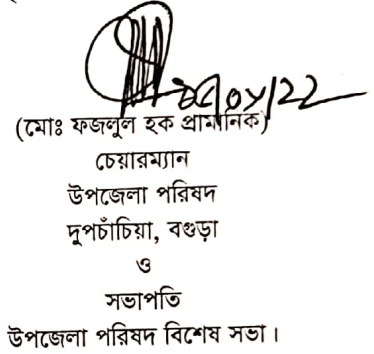 (মোঃ ফজলুল হক প্রামানিক)
চেয়ারম্যান
উপজেলা পরিষদ
দুপচাঁচিয়া, বগুড়া
ও
সভাপতি
উপজেলা পরিষদ বিশেষ সভা।